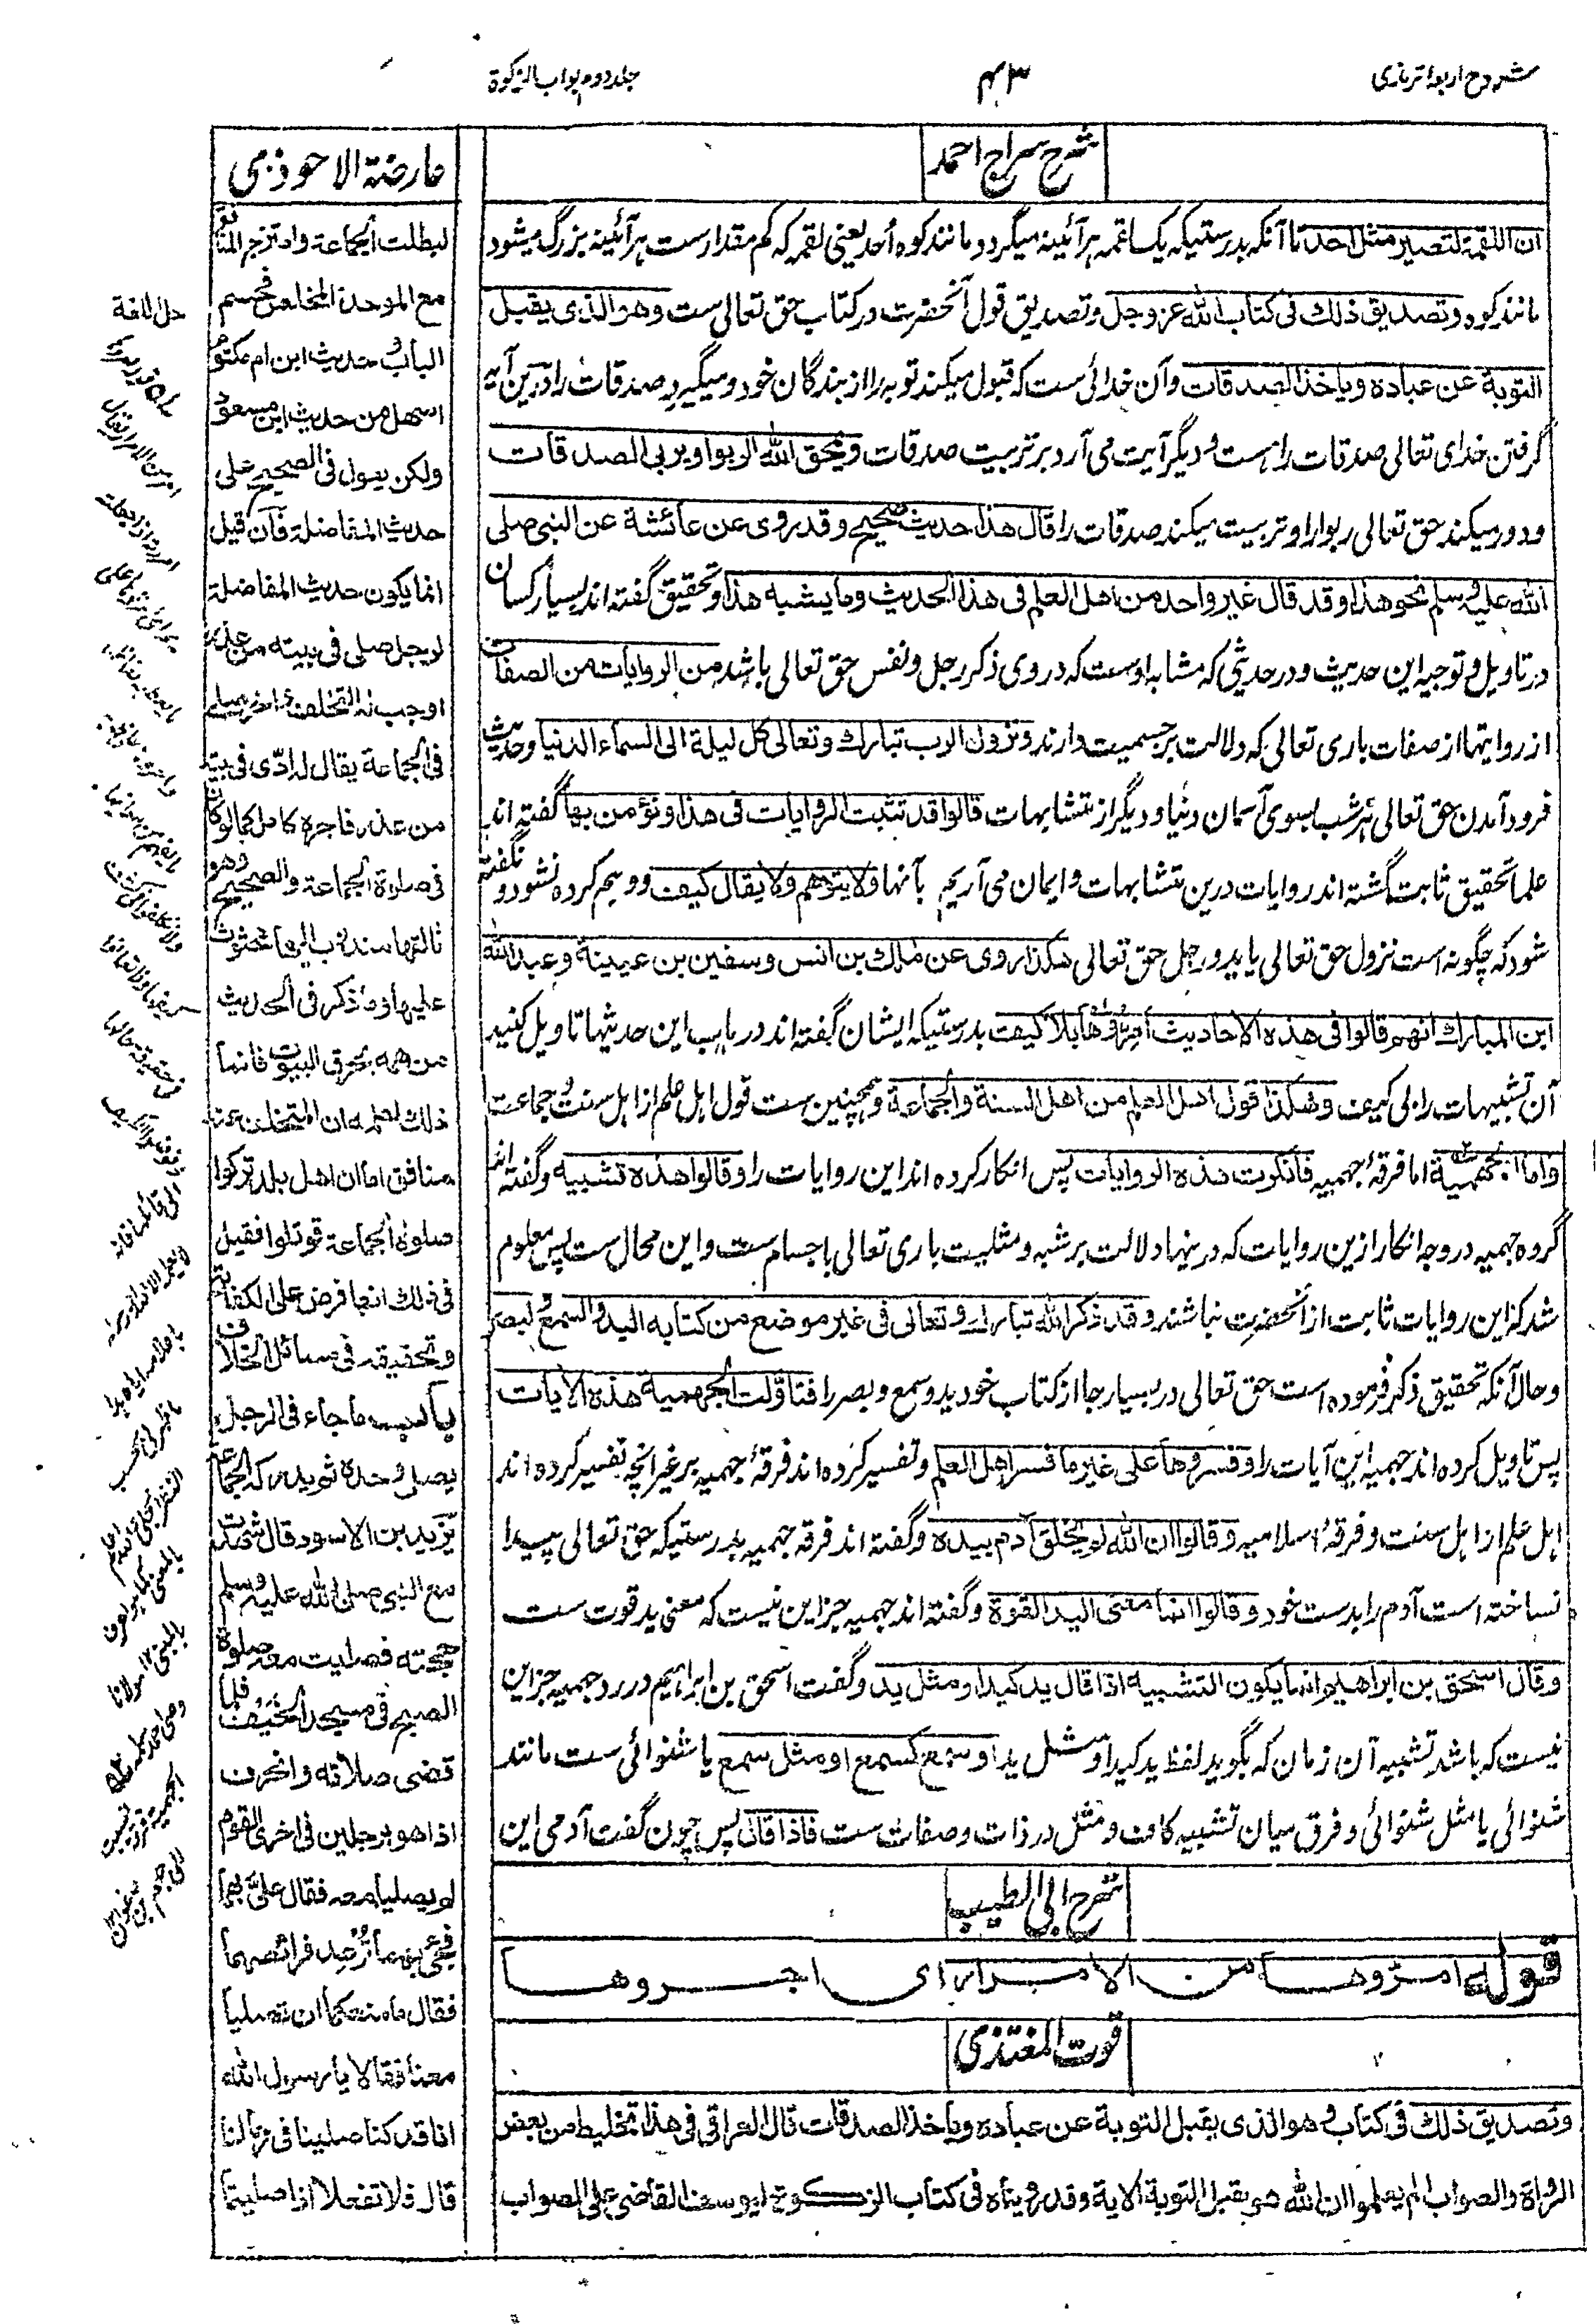 شروح اربعہ ترمذی
جلد دوم ابواب الزکوة
شرح سراج احمد
ان اللقمة لتصیر مثل احد تا آنکہ بدرستیکہ یک لقمہ ہر آئینہ میگردد مانند کوہ اُحد یعنی لقمہ کہ کم مقدارست ہر آئینہ بزرگ میشود
مانند کوہ وتصدیق ذلک فی کتاب اللہ عز وجل وتصدیق قول آنحضرت در کتاب حق تعالی ست وهو الذی یقبل
التوبة عن عباده ویاخذ الصدقات وآن خدائی ست کہ قبول میکند توبہ را از بندگان خود ومیگیرد صدقات را درین آیہ
گرفتن خدای تعالی صدقات راہست و دیگر آیت می آرد بر تربیت صدقات ویمحق اللہ الربوا ویربی الصدقات
ودور میکند حق تعالی ربوارا وتربیت میکند صدقات را قال هذا حدیث صحیح وقد روی عن عائشة عن النبی صلی
اللہ علیہ وسلم نحو هذا وقد قال غیر واحد من اهل العلم فی هذا الحدیث وما یشبه هذا وتحقیق گفتہ اند بسیار کسان
در تاویل وتوجیہ این حدیث ودر حدیثی کہ مشابہ اوست کہ در وی ذکر رجل ونفس حق تعالی باشد من الروایات من الصفات
از روایتہا از صفات باری تعالی کہ دلالت بر جسمیت دارند ونزول الرب تبارك وتعالی کل لیلة الی السماء الدنیا وحدیث
فرود آمدن حق تعالی ہر شب بسوی آسمان دنیا ودیگر از متشابہات قالوا قد تثبت الروایات فی هذا ونؤمن بها گفتہ اند
علما تحقیق ثابت گشتہ اند روایات درین متشابہات وایمان می آریم بآنہا ولا یتوهم ولا یقال کیف ووہم کردہ نشود ونگفتہ
شود کہ چگونہ است نزول حق تعالی یا ید ورجل حق تعالی هکذا روی عن مالك بن انس وسفین بن عیینة وعبد اللہ
ابن المبارك انهم قالوا فی هذه الاحادیث امروها بلا کیف بدرستیکہ ایشان گفتہ اند در باب این حدیثہا تاویل کنید
آن تشبیہات را بی کیف وهکذا قول اهل العلم من اهل السنة والجماعة وہمچنین ست قول اہل علم از اہل سنت وجماعت
واما الجهمیة اما فرقۂ جہمیہ فانکرت هذه الروایات پس انکار کردہ اند این روایات را وقالوا هذه تشبیه وگفتہ اند
گروہ جہمیہ در وجہ انکار ازین روایات کہ درینہا دلالت بر شبہ ومثلیت باری تعالی باجسام ست واین محال ست پس معلوم
شد کہ این روایات ثابت از آنحضرت نباشند وقد ذکر اللہ تبارك وتعالی فی غیر موضع من کتابه الید والسمع والبصر
وحال آنکہ تحقیق ذکر فرمودہ است حق تعالی در بسیار جا از کتاب خود ید وسمع وبصر را فتاولت الجهمیة هذه الایات
پس تاویل کردہ اند جہمیہ این آیات را وفسروها علی غیر ما فسر اهل العلم وتفسیر کردہ اند فرقۂ جہمیہ بر غیر آنچہ تفسیر کردہ اند
اہل علم از اہل سنت وفرقۂ اسلامیہ وقالوا ان اللہ لم یخلق آدم بیده وگفتہ اند فرقہ جہمیہ بدرستیکہ حق تعالی پیدا
نساختہ است آدم را بدست خود وقالوا انما معنی الید القوة وگفتہ اند جہمیہ جز این نیست کہ معنی ید قوت ست
وقال اسحق بن ابراهیم انما یکون التشبیه اذا قال ید کید او مثل ید وگفت اسحق بن ابراہیم در رد جہمیہ جز این
نیست کہ باشد تشبیہ آن زمان کہ بگوید لفظ ید کید او مثل ید او سمع کسمع او مثل سمع یا شنوائی ست مانند
شنوائی یا مثل شنوائی وفرق میان تشبیہ کاف ومثل در ذات وصفات ست فاذا قال پس چون گفت آدمی این
شرح ابی الطیب
قوله امروها من الامرار ای اجروها
قوت المغتذی
وتصدیق ذلك فی کتاب وهو الذی یقبل التوبة عن عباده ویاخذ الصدقات قال العراقی فی هذا تخلیط من بعض
الرواة والصواب الم یعلموا ان اللہ هو یقبل التوبة الایة وقد رویناه فی کتاب الزکوة لیوسف القاضی علی الصواب
عارضة الاحوذی
لبطلت الجماعة واد ترجم المنافق
مع الموحد المخلص فحسم
الباب وحدیث ابن ام مکتوم
اسهل من حدیث ابن مسعود
ولکن یعول فی الصحیح علی
حدیث المفاضلة فان قیل
انما یکون حدیث المفاضلة
لرجل صلی فی بیته من عذر
اوجب له التخلف واخر صلی
فی الجماعة یقال له ادّی فی بیته
من عذر فاجره کامل کما لو کان
فی صلوة الجماعة والصحیح وهو
ثالثها مندوب الیها محثوث
علیها وما ذکر فی الحدیث
من همه بحرق البیوت فانما
ذلك لعلمه ان المتخلف عنه
منافق اما ان اهل بلد ترکوا
صلوة الجماعة قوتلوا فقیل
فی ذلك انها فرض علی الکفایة
وتحقیقه فی مسائل الخلاف
باب ما جاء فی الرجل
یصلی وحده ثم یدرك الجماعة
یزید بن الاسود قال شهدت
مع النبی صلی اللہ علیہ وسلم
حجته فصلیت معه صلوة
الصبح فی مسجد الخیف فلما
قضی صلاته وانحرف
اذا هو برجلین فی اخری القوم
لم یصلیا معه فقال علیّ بهما
فجیء بهما ترعد فرائصهما
فقال ما منعکما ان تصلیا
معنا فقالا یا رسول اللہ
انا قد کنا صلینا فی رحالنا
قال فلا تفعلا اذا صلیتما
حل لغة